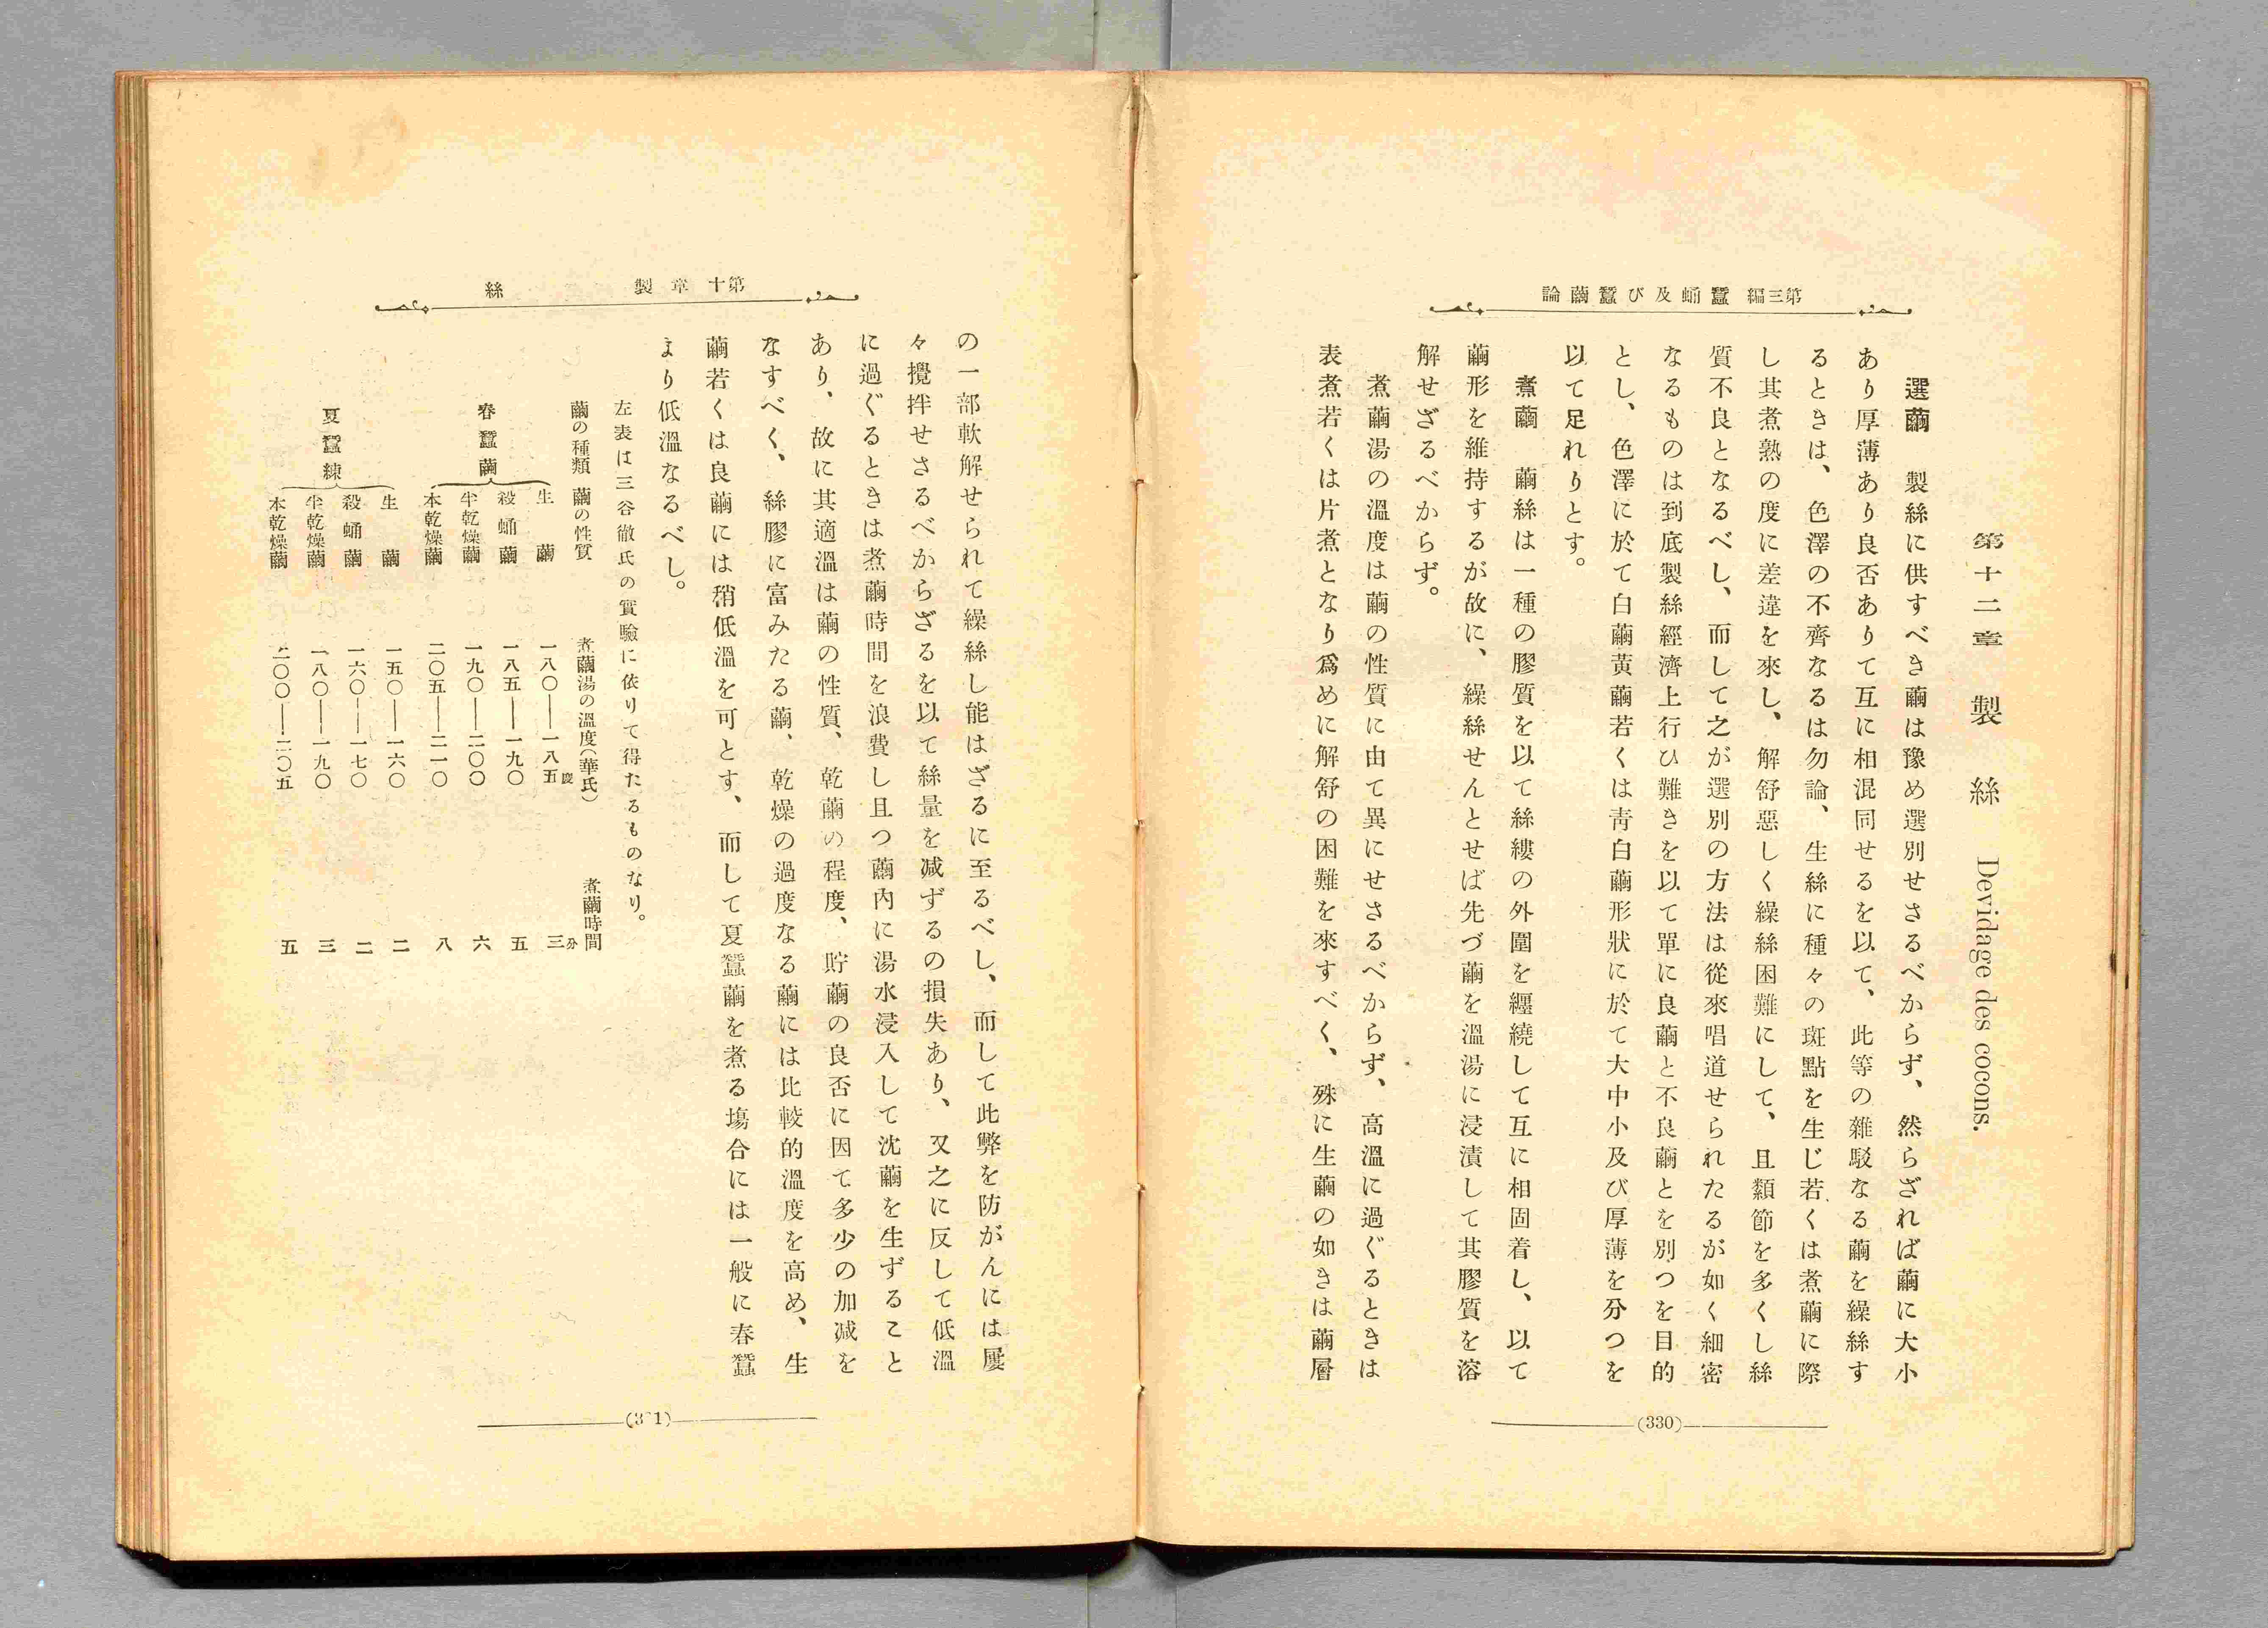 第三編 蠶蛹及び蠶繭論
第十二章 製絲 Devidage des cocons.
選繭 製絲に供すべき繭は豫め選別せさるべからず、然らざれば繭に大小
あり厚薄あり良否ありて互に相混同せるを以て、此等の雜駁なる繭を繰絲す
るときは、色澤の不齊なるは勿論、生絲に種々の斑點を生じ若くは煮繭に際
し其煮熟の度に差違を來し、解舒惡しく繰絲困難にして、且纇節を多くし絲
質不良となるべし、而して之が選別の方法は從來唱道せられたるが如く細密
なるものは到底製絲經濟上行ひ難きを以て單に良繭と不良繭とを別つを目的
とし、色澤に於て白繭黄繭若くは靑白繭形狀に於て大中小及び厚薄を分つを
以て足れりとす。
煮繭 繭絲は一種の膠質を以て絲縷の外圍を纒繞して互に相固着し、以て
繭形を維持するが故に、繰絲せんとせば先づ繭を溫湯に浸漬して其膠質を溶
解せざるべからず。
煮繭湯の溫度は繭の性質に由て異にせさるべからず、高溫に過ぐるときは
表煮若くは片煮となり爲めに解舒の困難を來すべく、殊に生繭の如きは繭層
(330)
第十 章 製 絲
の一部軟解せられて繰絲し能はざるに至るべし、而して此弊を防がんには屢
々攪拌せさるべからざるを以て絲量を減ずるの損失あり、又之に反して低溫
に過ぐるときは煮繭時間を浪費し且つ繭內に湯水浸入して沈繭を生ずること
あり、故に其適溫は繭の性質、乾繭の程度、貯繭の良否に因て多少の加減を
なすべく、絲膠に富みたる繭、乾燥の過度なる繭には比較的溫度を高め、生
繭若くは良繭には稍低溫を可とす、而して夏蠶繭を煮る塲合には一般に春蠶
より低溫なるべし。
左表は三谷徹氏の實驗に依りて得たるものなり。
繭の種類 繭の性質 煮繭湯の溫度(華氏) 煮繭時間
春蠶繭
生繭 一八〇——一八五度 三分
殺蛹繭 一八五——一九〇 五
半乾燥繭 一九〇——二〇〇 六
本乾燥繭 二〇五——二一〇 八
夏蠶繭
生繭 一五〇——一六〇 二
殺蛹繭 一六〇——一七〇 二
半乾燥繭 一八〇——一九〇 三
本乾燥繭 二〇〇——二〇五 五